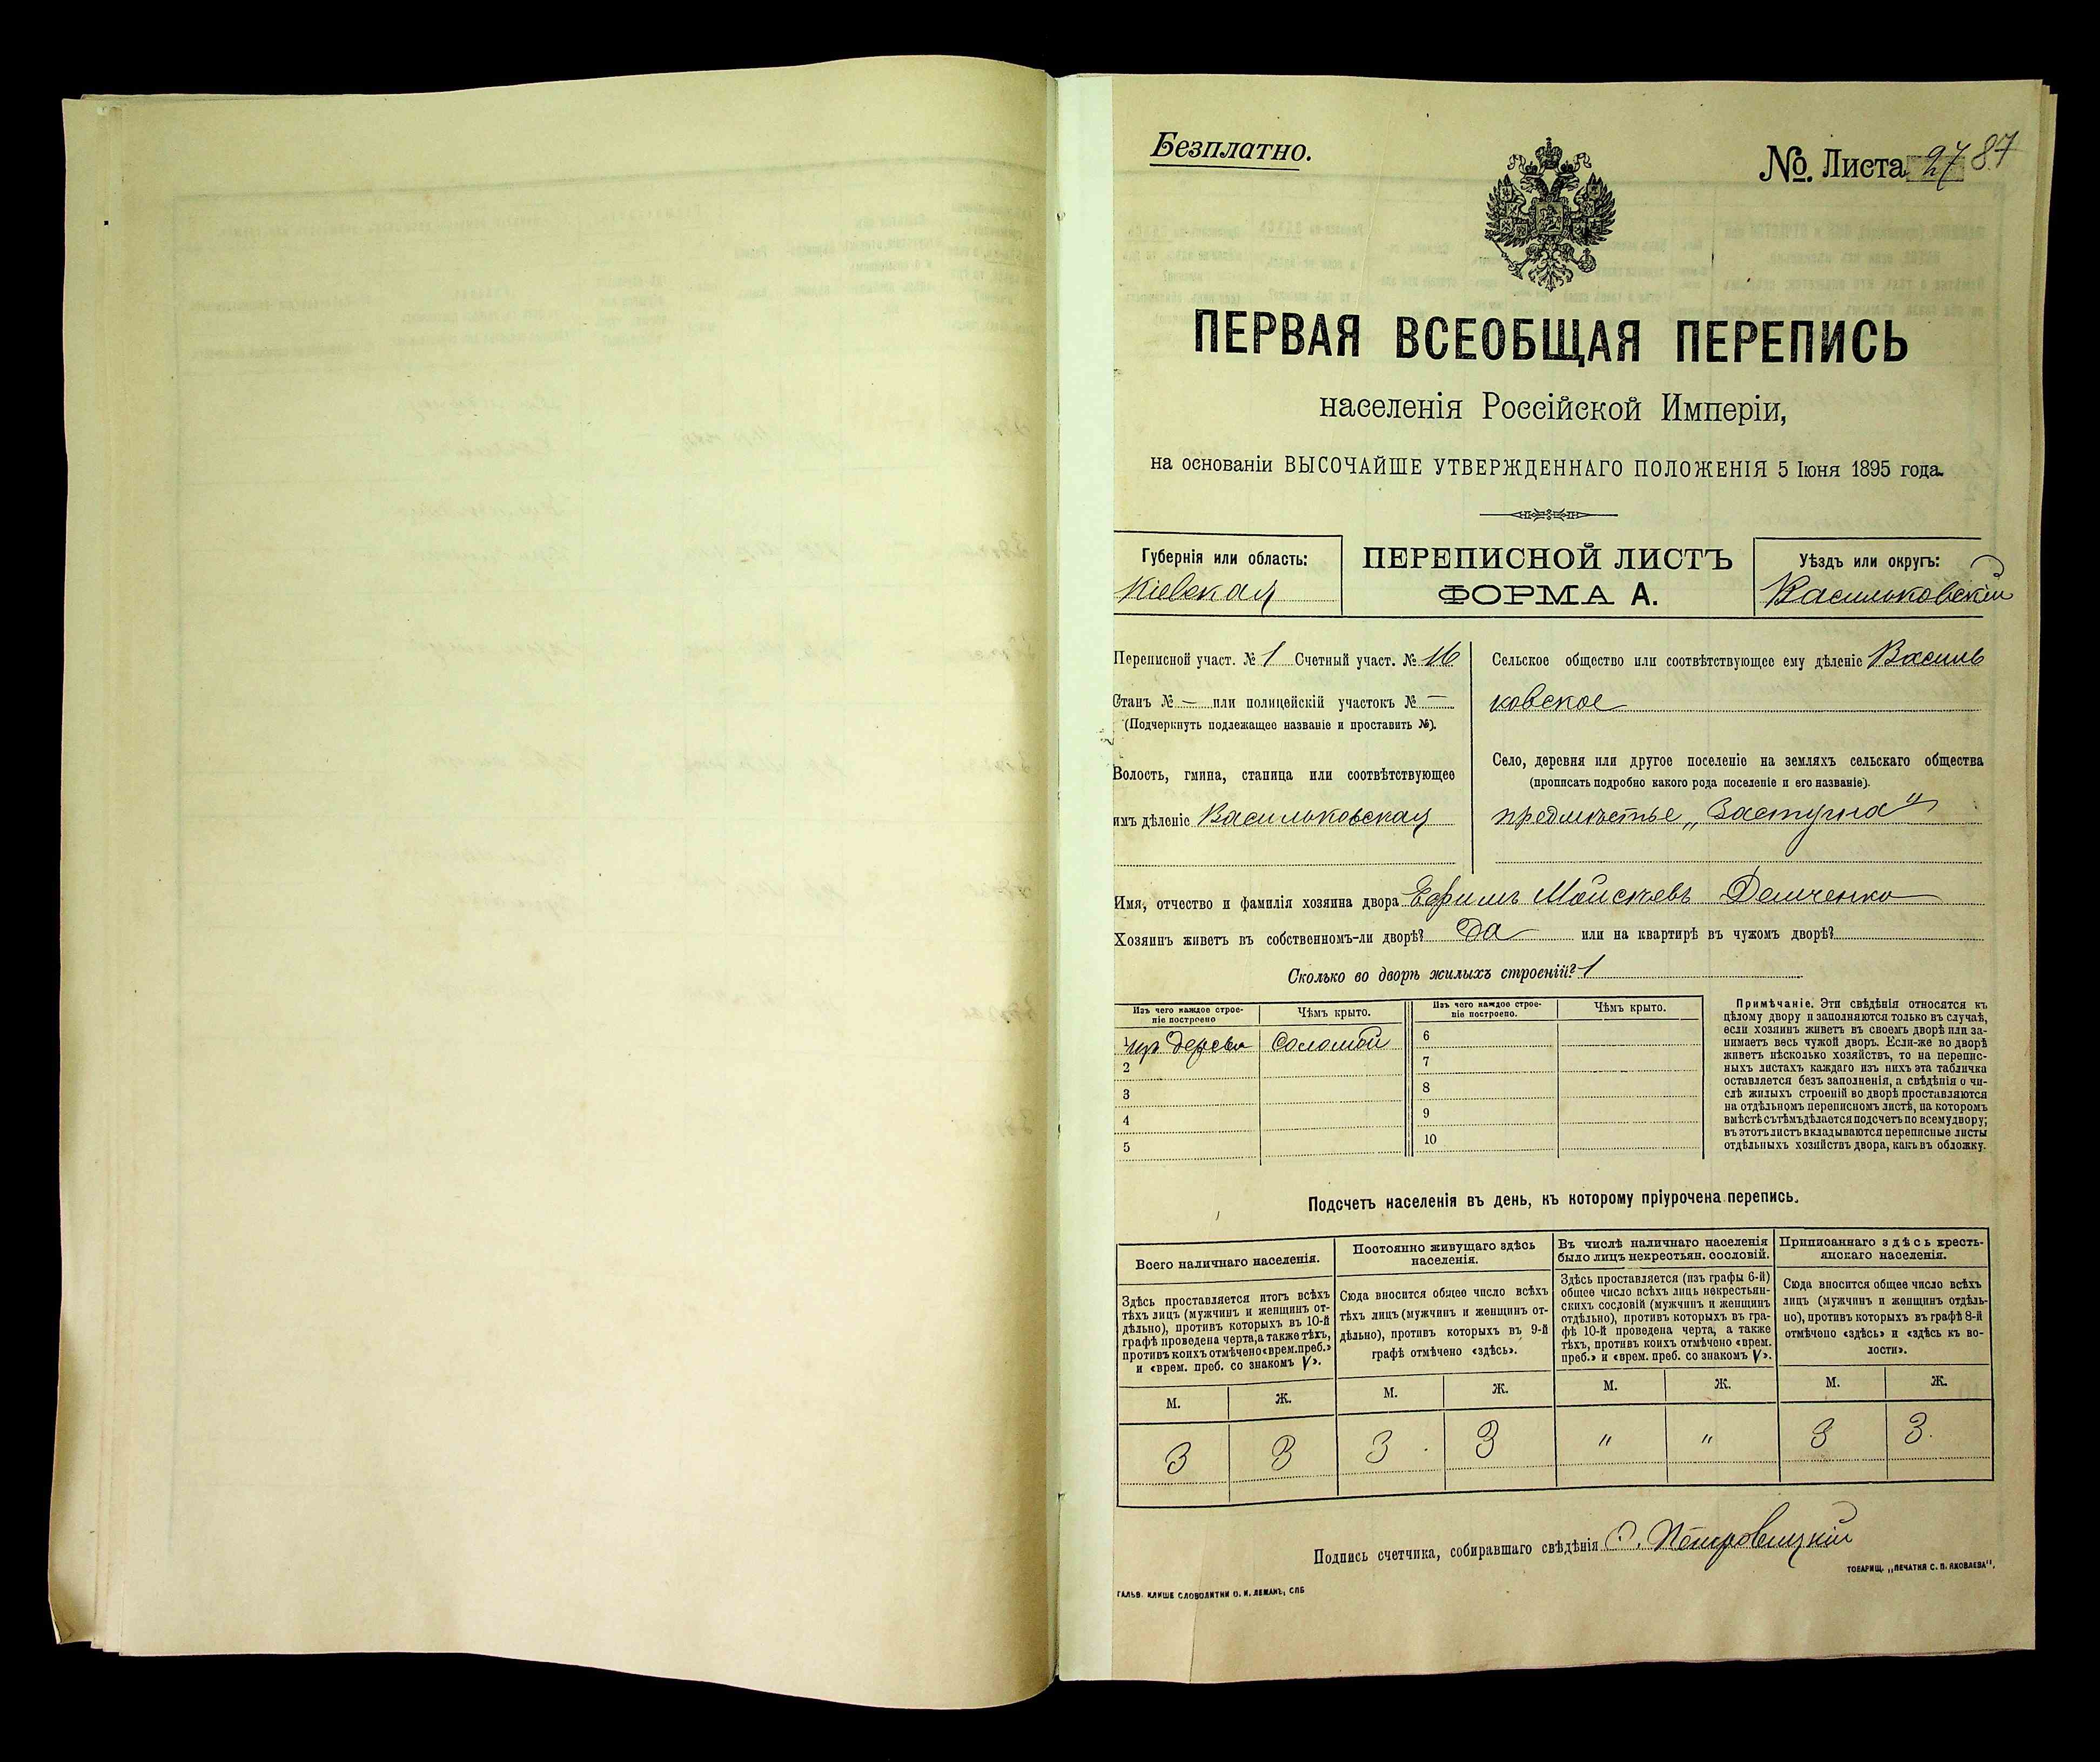 Безплатно.
№. Листа 27 87
ПЕРВАЯ ВСЕОБЩАЯ ПЕРЕПИСЬ
населенія Россійской Имперіи,
на основаніи ВЫСОЧАЙШЕ УТВЕРЖДЕННАГО ПОЛОЖЕНІЯ 5 Іюня 1895 года.
Губернія или область:
Кіевская
ПЕРЕПИСНОЙ ЛИСТЪ
ФОРМА А.
Уѣздъ или округъ:
Васильковскій
Переписной участ. № 1 Счетный участ. № 16
Станъ № — или полицейскій участокъ № —
(Подчеркнуть подлежащее названіе и проставить №).
Волость, гмина, станица или соотвѣтствующее
имъ дѣленіе Васильковская
Сельское общество или соотвѣтствующее ему дѣленіе Василь
ковское
Село, деревня или другое поселеніе на земляхъ сельскаго общества
(прописать подробно какого рода поселеніе и его названіе).
предмѣстье „Застугна"
Имя, отчество и фамилія хозяина двора Ефимъ Мойсеевъ Демченко
Хозяинъ живетъ въ собственномъ-ли дворѣ? Да или на квартирѣ въ чужомъ дворѣ?
Сколько во дворѣ жилыхъ строеній? 1
Изъ чего каждое строе-
ніе построено
Чѣмъ крыто.
Изъ чего каждое строе-
ніе построено.
Чѣмъ крыто.
1 изъ дерева Соломой
2
3
4
5
6
7
8
9
10
Примѣчаніе. Эти свѣдѣнія относятся къ
цѣлому двору и заполняются только въ случаѣ,
если хозяинъ живетъ въ своемъ дворѣ или за-
нимаетъ весь чужой дворъ. Если-же во дворѣ
живетъ нѣсколько хозяйствъ, то на перепис-
ныхъ листахъ каждаго изъ нихъ эта табличка
оставляется безъ заполненія, а свѣдѣнія о чи-
слѣ жилыхъ строеній во дворѣ проставляются
на отдѣльномъ переписномъ листѣ, на которомъ
вмѣстѣ съ тѣмъ дѣлается подсчетъ по всему двору;
въ этотъ листъ вкладываются переписные листы
отдѣльныхъ хозяйствъ двора, какъ въ обложку.
Подсчетъ населенія въ день, къ которому пріурочена перепись.
Всего наличнаго населенія.
Здѣсь проставляется итогъ всѣхъ
тѣхъ лицъ (мужчинъ и женщинъ от-
дѣльно), противъ которыхъ въ 10-й
графѣ проведена черта, а также тѣхъ,
противъ коихъ отмѣчено «врем. преб.»
и «врем. преб. со знакомъ V».
Постоянно живущаго здѣсь
населенія.
Сюда вносится общее число всѣхъ
тѣхъ лицъ (мужчинъ и женщинъ от-
дѣльно), противъ которыхъ въ 9-й
графѣ отмѣчено «здѣсь».
Въ числѣ наличнаго населенія
было лицъ некрестьян. сословій.
Здѣсь проставляется (изъ графы 6-й)
общее число всѣхъ лицъ некрестьян-
скихъ сословій (мужчинъ и женщинъ
отдѣльно), противъ которыхъ въ гра-
фѣ 10-й проведена черта, а также
тѣхъ, противъ коихъ отмѣчено «врем.
преб.» и «врем. преб. со знакомъ V».
Приписаннаго здѣсь кресть-
янскаго населенія.
Сюда вносится общее число всѣхъ
лицъ (мужчинъ и женщинъ отдѣль-
но), противъ которыхъ въ графѣ 8-й
отмѣчено «здѣсь» и «здѣсь къ во-
лости».
М. Ж. М. Ж. М. Ж. М. Ж.
3 3 3 3 " " 3 3
Подпись счетчика, собиравшаго свѣдѣнія
ГАЛЬВ. КЛИШЕ СЛОВОЛИТНИ О. И. ЛЕМАНЪ, СПБ
ТОВАРИЩ. „ПЕЧАТНЯ С. П. ЯКОВЛЕВА".